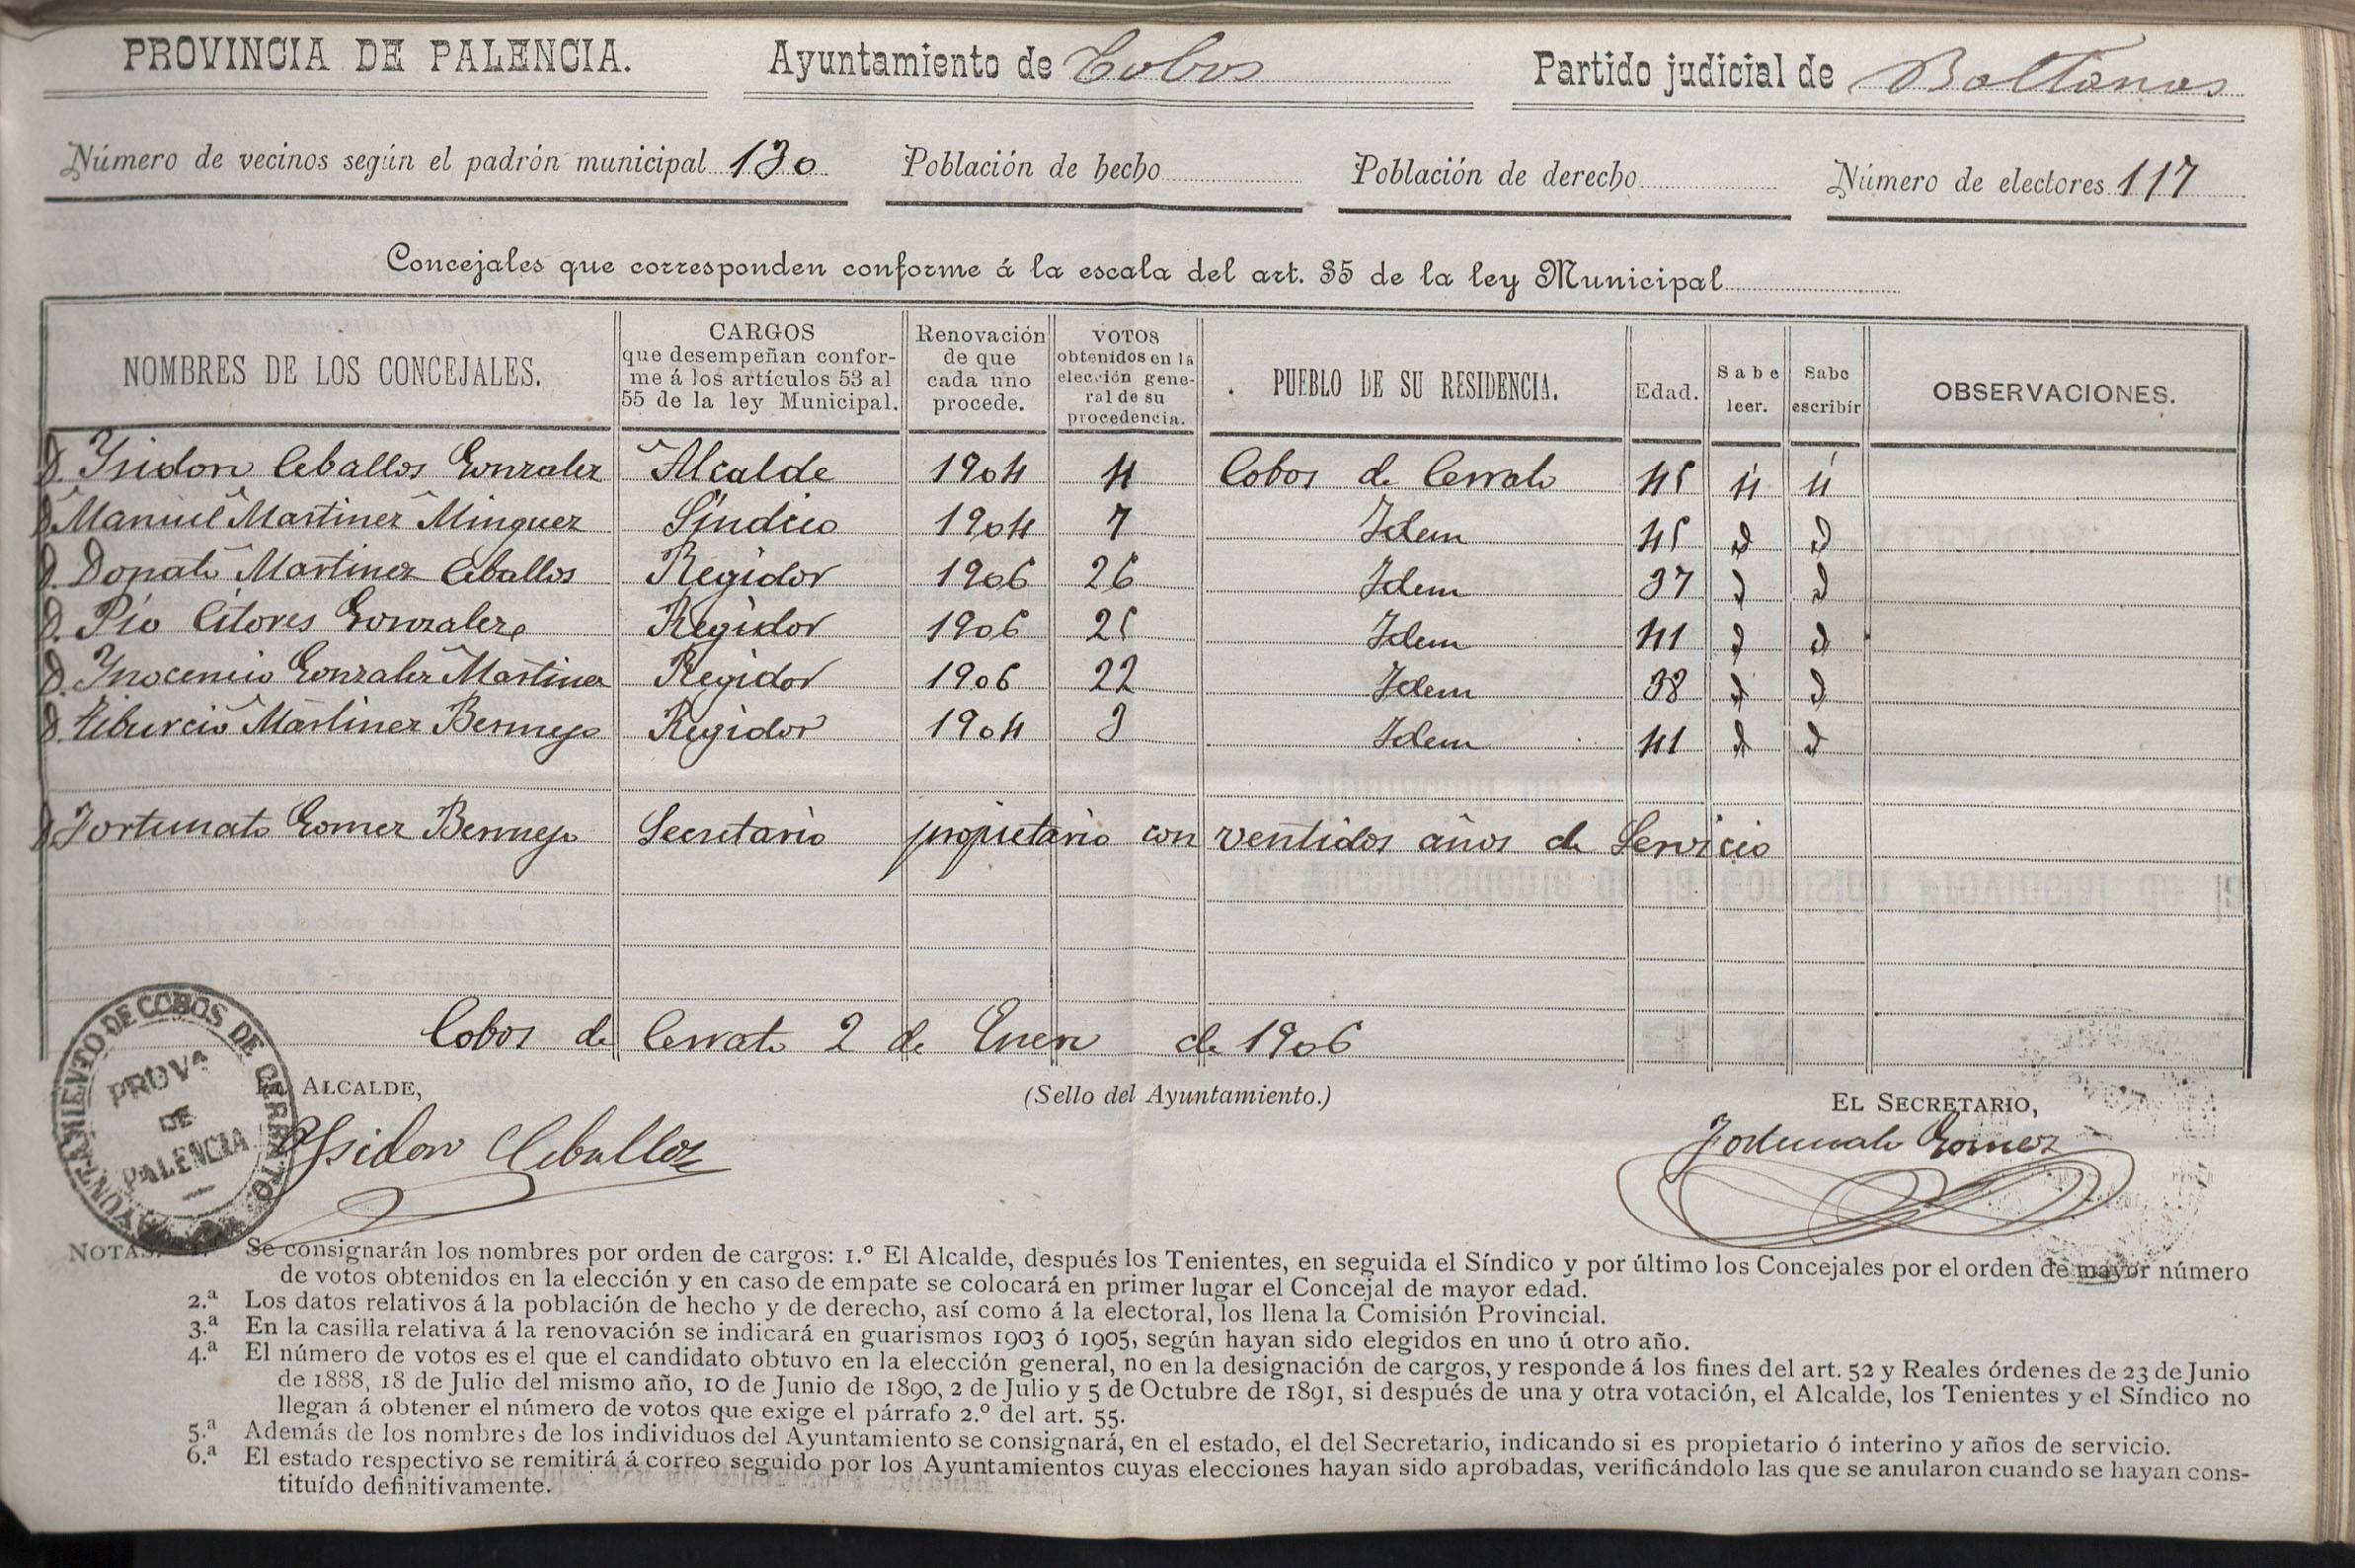 PROVINCIA DE PALENCIA. Ayuntamiento de Cobos Partido judicial de Baltanas
Número de vecinos según el padrón municipal 130 Población de hecho Población de derecho Número de electores 117
Concejales que corresponden conforme á la escala del art. 35 de la ley Municipal
NOMBRES DE LOS CONCEJALES. CARGOS que desempeñan conforme á los artículos 53 al 55 de la ley Municipal. Renovación de que cada uno procede. VOTOS obtenidos en la elección general de su procedencia. PUEBLO DE SU RESIDENCIA. Edad. Sabe leer. Sabe escribir OBSERVACIONES.
D. Ysidoro Ceballos Gonzalez Alcalde 1904 4 Cobos de Cerrato 45 si si
D. Manuel Martinez Minguez Síndico 1904 7 Idem 45 id id
D. Donato Martinez Ceballos Regidor 1906 26 Idem 37 id id
D. Pío Citores Gonzalez Regidor 1906 25 Idem 41 id id
D. Ynocencio Gonzalez Martinez Regidor 1906 22 Idem 38 id id
D. Tiburcio Martinez Bermejo Regidor 1904 3 Idem 41 id id
D. Fortunato Gomez Bermejo Secretario propietario con ventidos años de Servicio
Cobos de Cerrato 2 de Enero de 1906
AYUNTAMIENTO DE COBOS DE CERRATO
PROVª
DE
PALENCIA
EL ALCALDE, (Sello del Ayuntamiento.) EL SECRETARIO,
Ysidoro Ceballos Fortunato Gomez
NOTAS. 1.ª Se consignarán los nombres por orden de cargos: 1.º El Alcalde, después los Tenientes, en seguida el Síndico y por último los Concejales por el orden de mayor número
de votos obtenidos en la elección y en caso de empate se colocará en primer lugar el Concejal de mayor edad.
2.ª Los datos relativos á la población de hecho y de derecho, así como á la electoral, los llena la Comisión Provincial.
3.ª En la casilla relativa á la renovación se indicará en guarismos 1903 ó 1905, según hayan sido elegidos en uno ú otro año.
4.ª El número de votos es el que el candidato obtuvo en la elección general, no en la designación de cargos, y responde á los fines del art. 52 y Reales órdenes de 23 de Junio
de 1888, 18 de Julio del mismo año, 10 de Junio de 1890, 2 de Julio y 5 de Octubre de 1891, si después de una y otra votación, el Alcalde, los Tenientes y el Síndico no
llegan á obtener el número de votos que exige el párrafo 2.º del art. 55.
5.ª Además de los nombres de los individuos del Ayuntamiento se consignará, en el estado, el del Secretario, indicando si es propietario ó interino y años de servicio.
6.ª El estado respectivo se remitirá á correo seguido por los Ayuntamientos cuyas elecciones hayan sido aprobadas, verificándolo las que se anularon cuando se hayan cons-
tituído definitivamente.